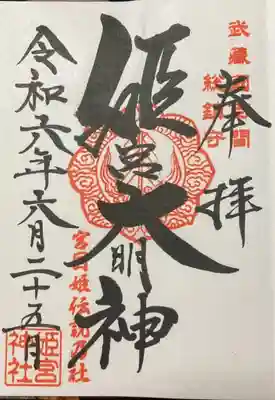 武蔵国百間
総鎮守
奉拝
姫宮大明神
宮目姫伝説乃社
令和六年六月二十五日
姫宮
神社